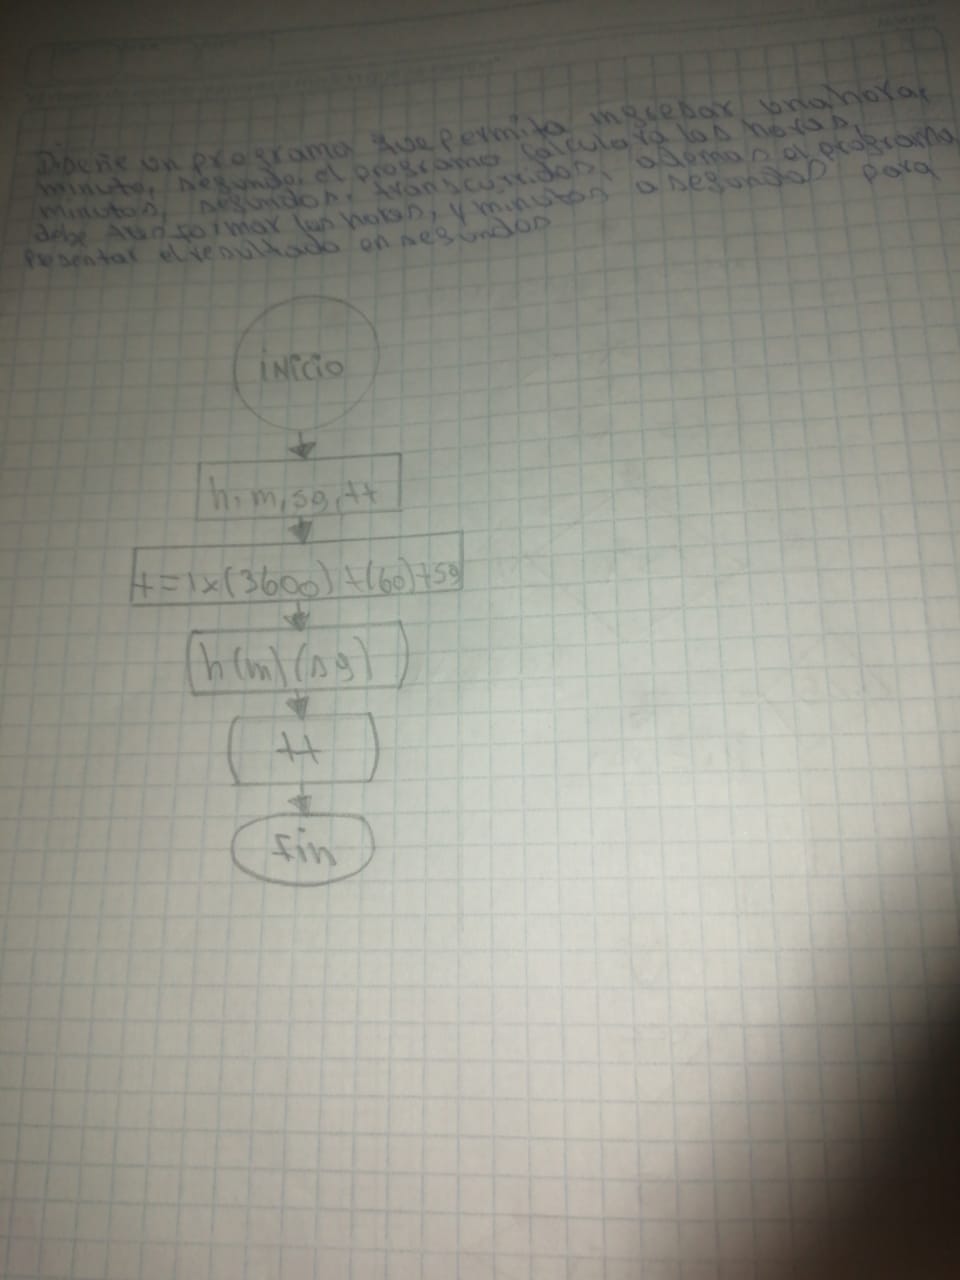 Diseñe un programa que permita ingresar una hora,
minuto, segundo, el programa calculara las horas,
minutos, segundos, transcurridos, ademas el programa
debe transformar las horas, y minutos a segundos para
presentar el resultado en segundos
iNicio
h, m, sg, tt
t=1x(3600)+(60)+sg
h(m)(sg)
tt
fin